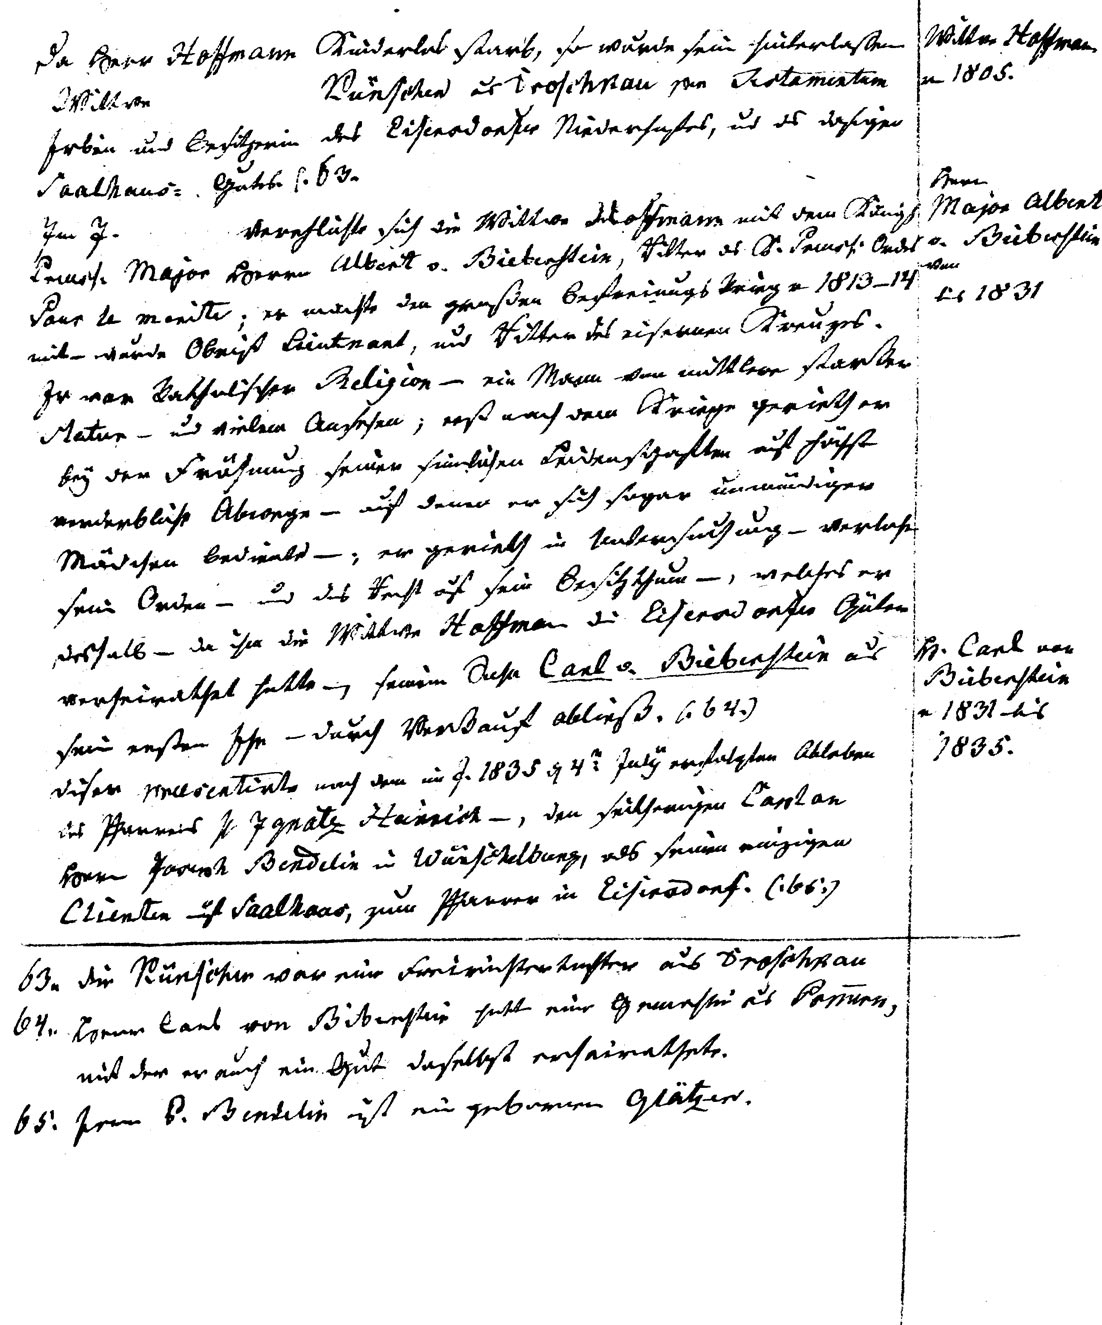 Da Herr Hoffmann Kinderlos starb, so wurde sein hinterlassen
Wittwe Künschen aus Droschkau per Testamentum
Erbin und Besitzerin des Eisersdorfer Niederhofes, und des dasigen
Saalhaus= Guts (. 63.
Im J. verehlichte sich die Wittwe Hoffmann mit dem Königl.
Preuss. Major Herrn Albert v. Bieberstein, Ritter des K. Preuss. Ordes
Pour le merite; er machte den grossen Befreiungs Krieg v 1813–14
mit – wurde Obrist Lieutenant, und Ritter des eisernen Kreuzes.
Er war katholischer Religion – ein Mann von mittlerer starker
Statur – und vielem Ansehen; erst nach dem Kriege gerieth er
bey der Fröhnung seiner sinnlichen Leidenschaften auf höchst
verderbliche Abwege – auf denen er sich sogar unmündiger
Mädchen bediente –; er gerieth in Untersuchung – verlohr
sein Orden – und das Recht auf sein Besitzthum –, welches er
deshalb – da ihm die Wittwe Hoffman die Eisersdorfer Güter
verheirathet hatte –, seinem Sohn Carl v. Bieberstein aus
sein ersten Ehe – durch Verkauf abließ. (. 64.)
dieser praesentirte nach dem im J. 1835 d 4t July erfolgten Ableben
des Pfarrers Ignatz Heinrich –, den seitherigen Caplan
Herrn Joseph Bendelin in Wünschelburg, als seinen einzigen
Clienten auf Saalhaus, zum Pfarrer in Eisersdorf. (. 65.)
Wittwe Hoffman
v 1805.
Herr
Major Albert
v. Bieberstein
von
bis 1831
H. Carl von
Bieberstein
v 1831 bis
1835.
63. die Künschen war eine Freirichtertochter aus Droschkau
64. Herr Carl von Biberstein hatte eine Gemahlin aus Pommern,
mit der er auch ein Gut daselbst erheirathete.
65. Herr P. Bendelin ist ein geborner Glätzer.